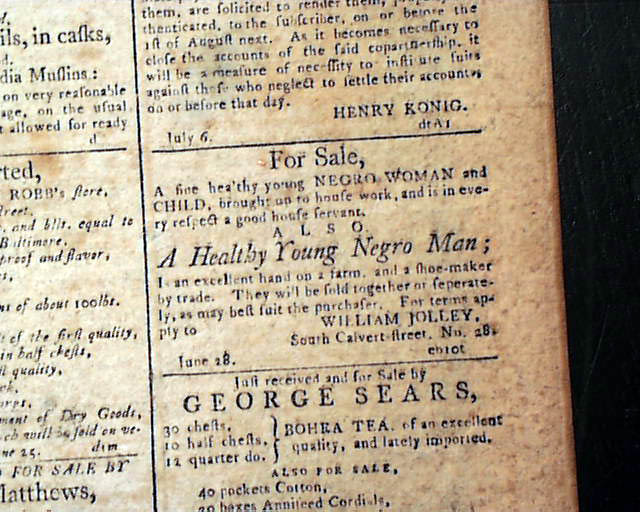 ils, in casks,
dia Muslins:
on very reasonable
age, on the usual
t allowed for ready
d
rted,
ROBB's store,
street,
, and blls. equal to
Baltimore,
proof and flavor,
nt of about 100lbs.
t of the first quality,
in half chests,
st quality,
ment of Dry Goods,
ch will be sold on ve-
ne 25. dtm
FOR SALE BY
Matthews,
them, are solicited to render them,
thenticated, to the subscriber, on or before the
1st of August next. As it becomes necessary to
close the accounts of the said copartnership, it
will be a measure of necessity to institute suits
against those who neglect to settle their accounts
on or before that day.
HENRY KONIG.
July 6. dtA1
For Sale,
A fine healthy young NEGRO WOMAN and
CHILD, brought up to house work, and is in eve-
ry respect a good house servant.
ALSO,
A Healthy Young Negro Man;
Is an excellent hand on a farm, and a shoe-maker
by trade. They will be sold together or seperate-
ly, as may best suit the purchaser. For terms ap-
ply to WILLIAM JOLLEY,
South Calvert-street, No. 28.
June 28. eo10t
Just received and for Sale by
GEORGE SEARS,
30 chests, } BOHEA TEA, of an excellent
10 half chests, } quality, and lately imported.
12 quarter do. }
ALSO FOR SALE,
40 pockets Cotton,
20 boxes Anniseed Cordials,